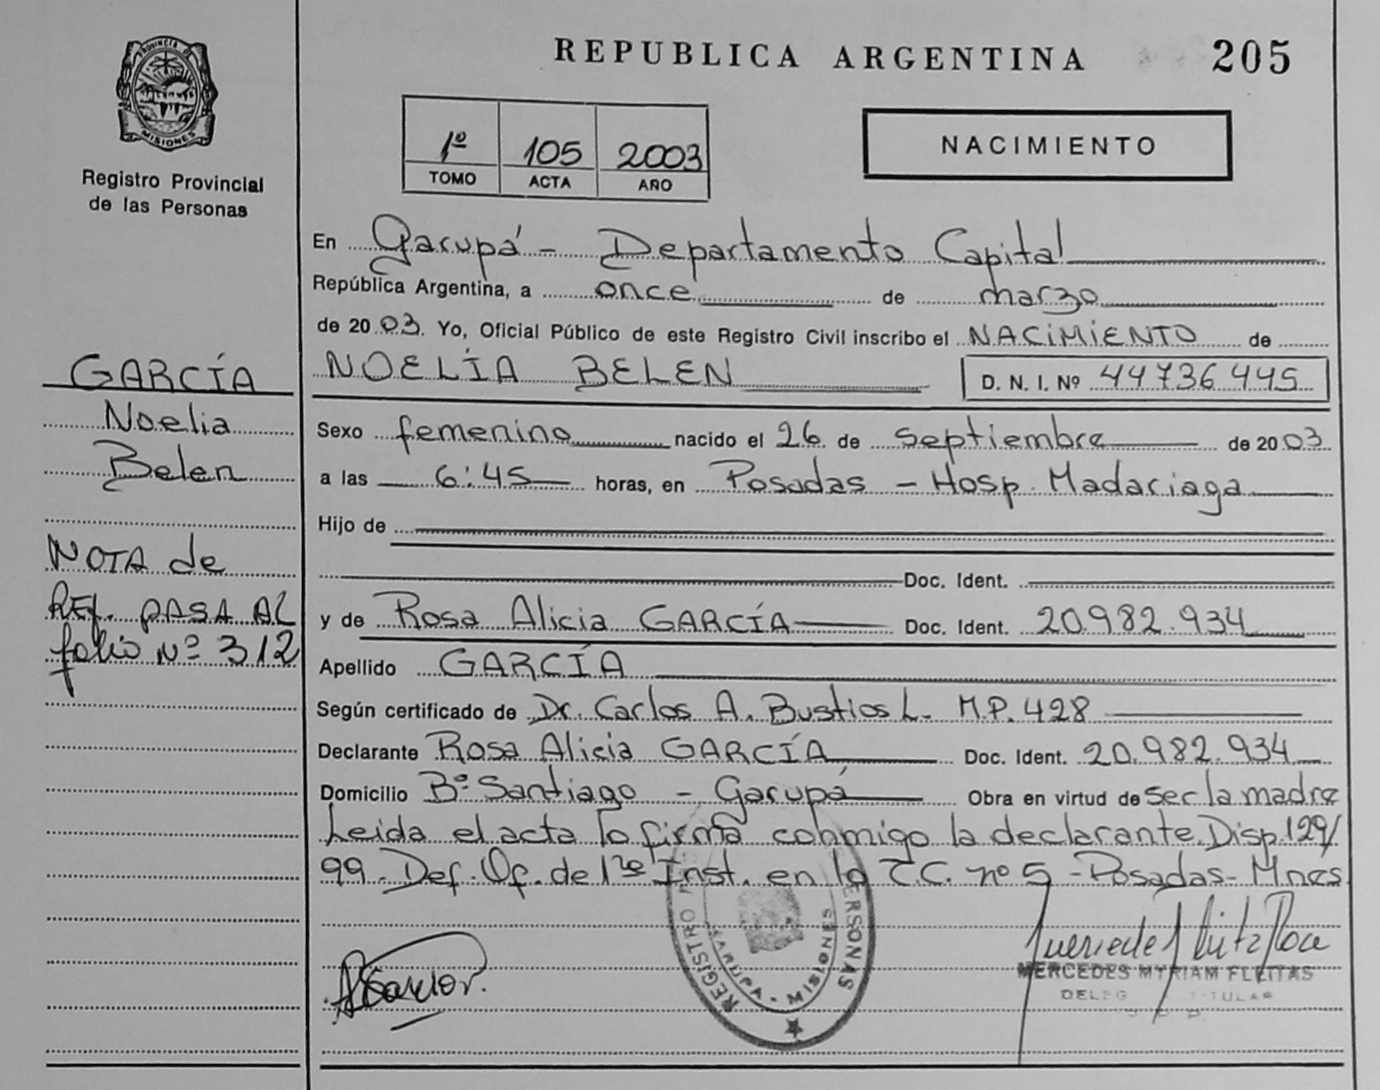 PROVINCIA DE
MISIONES
Registro Provincial
de las Personas
REPUBLICA ARGENTINA 205
1º 105 2003
TOMO ACTA AÑO
NACIMIENTO
En Garupá - Departamento Capital
República Argentina, a once de marzo
de 2003. Yo, Oficial Público de este Registro Civil inscribo el NACIMIENTO de
NOELIA BELEN D. N. I. Nº 44736445
Sexo femenino nacido el 26 de septiembre de 2003
a las 6:45 horas, en Posadas - Hosp. Madariaga
Hijo de
Doc. Ident.
y de Rosa Alicia GARCÍA Doc. Ident. 20.982.934
Apellido GARCÍA
Según certificado de Dr. Carlos A. Bustios L. M.P. 428
Declarante Rosa Alicia GARCÍA Doc. Ident. 20.982.934
Domicilio Bº Santiago - Garupá Obra en virtud de ser la madre
Leida el acta la firma conmigo la declarante. Disp. 129/
99. Def. Of. de 1ra Inst. en lo C.C. nº 5 - Posadas - Mnes
GARCÍA
Noelia
Belen
NOTA de
REF. PASA AL
folio Nº 312
REGISTRO PERSONAS
GARUPA - MISIONES
MERCEDES MYRIAM FLEITAS
TITULAR